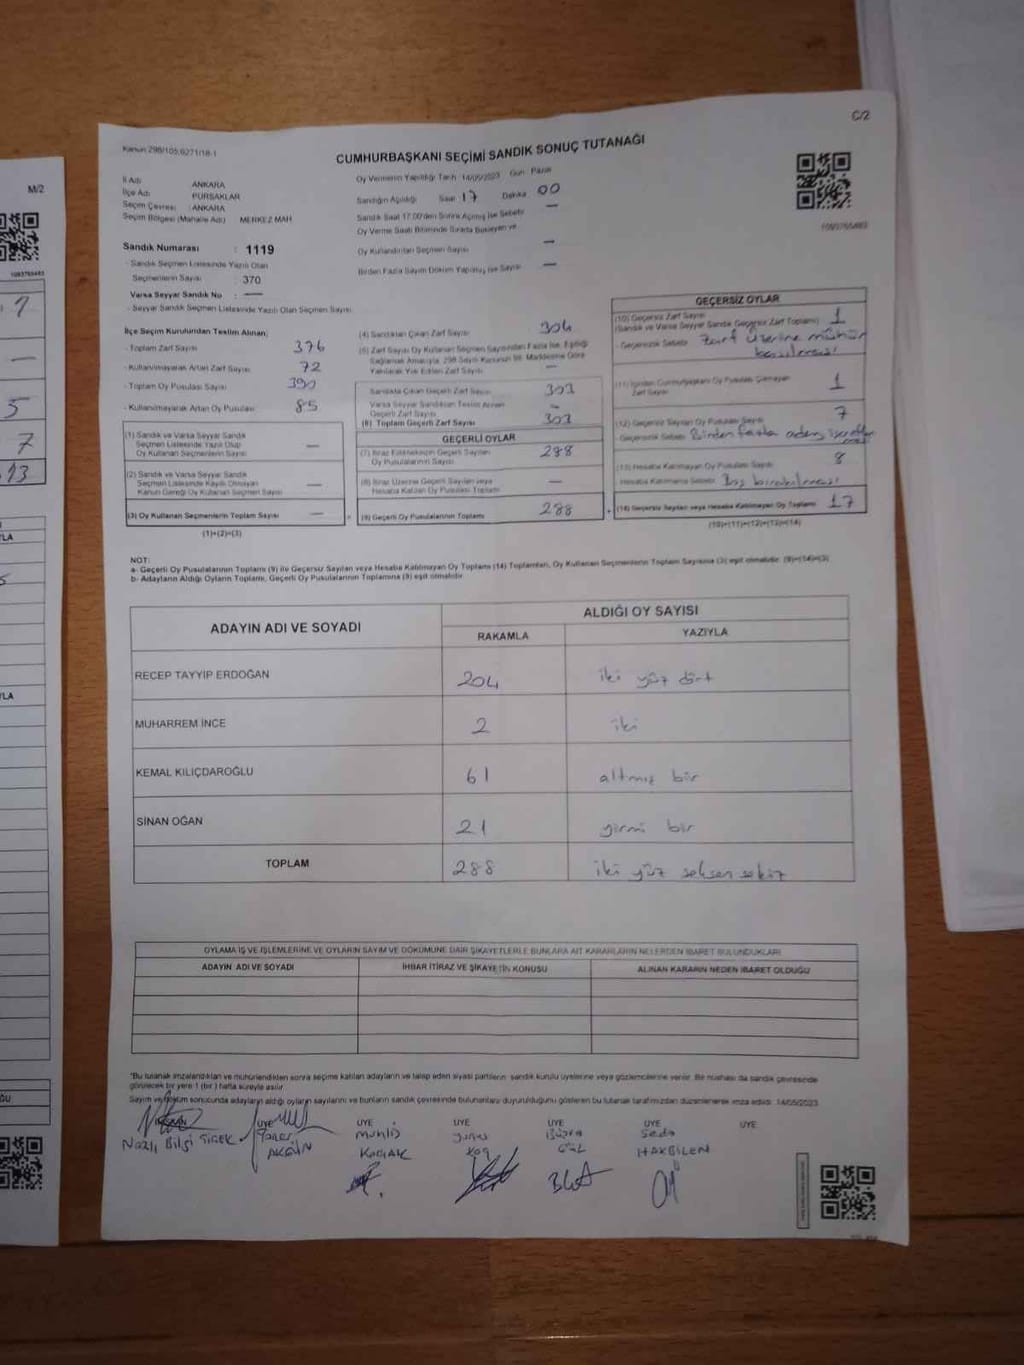 C/2
Kanun 298/105,6271/18-1
CUMHURBAŞKANI SEÇİMİ SANDIK SONUÇ TUTANAĞI
İl Adı : ANKARA
İlçe Adı : PURSAKLAR
Seçim Çevresi : ANKARA
Seçim Bölgesi (Mahalle Adı) MERKEZ MAH
Sandık Numarası : 1119
- Sandık Seçmen Listesinde Yazılı Olan
Seçmenlerin Sayısı : 370
Varsa Seyyar Sandık No : —
- Seyyar Sandık Seçmen Listesinde Yazılı Olan Seçmen Sayısı:
Oy Vermenin Yapıldığı Tarih 14/05/2023 Gün Pazar
Sandığın Açıldığı Saat 17 Dakika 00
Sandık Saat 17.00'den Sonra Açılmış İse Sebebi —
Oy Verme Saati Bitiminde Sırada Bekleyen ve
Oy Kullandırılan Seçmen Sayısı —
Birden Fazla Sayım Döküm Yapılmış ise Sayısı —
İlçe Seçim Kurulundan Teslim Alınan;
- Toplam Zarf Sayısı 376
- Kullanılmayarak Artan Zarf Sayısı 72
- Toplam Oy Pusulası Sayısı 390
- Kullanılmayarak Artan Oy Pusulası 85
(1) Sandık ve Varsa Seyyar Sandık
Seçmen Listesinde Yazılı Olup
Oy Kullanan Seçmenlerin Sayısı —
(2) Sandık ve Varsa Seyyar Sandık
Seçmen Listesinde Kayıtlı Olmayan
Kanun Gereği Oy Kullanan Seçmen Sayısı —
(3) Oy Kullanan Seçmenlerin Toplam Sayısı —
(1)+(2)=(3)
(4) Sandıktan Çıkan Zarf Sayısı 304
(5) Zarf Sayısı Oy Kullanan Seçmen Sayısından Fazla İse, Eşitliği
Sağlamak Amacıyla, 298 Sayılı Kanunun 98. Maddesine Göre
Yakılarak Yok Edilen Zarf Sayısı —
Sandıkta Çıkan Geçerli Zarf Sayısı 303
Varsa Seyyar Sandıktan Teslim Alınan
Geçerli Zarf Sayısı —
(6) Toplam Geçerli Zarf Sayısı 303
GEÇERLİ OYLAR
(7) İtiraz Edilmeksizin Geçerli Sayılan
Oy Pusulalarının Sayısı 288
(8) İtiraz Üzerine Geçerli Sayılan veya
Hesaba Katılan Oy Pusulası Toplamı —
(9) Geçerli Oy Pusulalarının Toplamı 288
GEÇERSİZ OYLAR
(10) Geçersiz Zarf Sayısı
(Sandık ve Varsa Seyyar Sandık Geçersiz Zarf Toplamı) 1
- Geçersizlik Sebebi Zarf üzerine mühür
basılması
(11) İçinden Cumhurbaşkanı Oy Pusulası Çıkmayan
Zarf Sayısı 1
(12) Geçersiz Sayılan Oy Pusulası Sayısı 7
- Geçersizlik Sebebi Birden fazla aday işaretlenmesi
(13) Hesaba Katılmayan Oy Pusulası Sayısı 8
Hesaba Katılmama Sebebi Boş bırakılması
(14) Geçersiz Sayılan veya Hesaba Katılmayan Oy Toplamı 17
(10)+(11)+(12)+(13)=(14)
NOT:
a- Geçerli Oy Pusulalarının Toplamı (9) ile Geçersiz Sayılan veya Hesaba Katılmayan Oy Toplamı (14) Toplamları, Oy Kullanan Seçmenlerin Toplam Sayısına (3) eşit olmalıdır. (9)+(14)=(3)
b- Adayların Aldığı Oyların Toplamı, Geçerli Oy Pusulalarının Toplamına (9) eşit olmalıdır
ADAYIN ADI VE SOYADI
ALDIĞI OY SAYISI
RAKAMLA YAZIYLA
RECEP TAYYIP ERDOĞAN 204 iki yüz dört
MUHARREM İNCE 2 iki
KEMAL KILIÇDAROĞLU 61 altmış bir
SİNAN OĞAN 21 yirmi bir
TOPLAM 288 iki yüz seksen sekiz
OYLAMA İŞ VE İŞLEMLERİNE VE OYLARIN SAYIM VE DÖKÜMÜNE DAİR ŞİKAYETLERLE BUNLARA AİT KARARLARIN NELERDEN İBARET BULUNDUKLARI
ADAYIN ADI VE SOYADI İHBAR İTİRAZ VE ŞİKAYETİN KONUSU ALINAN KARARIN NEDEN İBARET OLDUĞU
*Bu tutanak imzalandıktan ve mühürlendikten sonra seçime katılan adayların ve talep eden siyasi partilerin sandık kurulu üyelerine veya gözlemcilerine verilir. Bir nüshası da sandık çevresinde
görülecek bir yere 1 (bir) hafta süreyle asılır
Sayım ve döküm sonucunda adayların aldığı oyların sayılarını ve bunların sandık çevresinde bulunanlara duyurulduğunu gösteren bu tutanak tarafımızdan düzenlenerek imza edildi. 14/05/2023
ÜYE ÜYE ÜYE ÜYE ÜYE ÜYE
Nazlı Bilgi
AKGÜN
Yunus
Büşra
GÜL
Seda
HAKBİLEN
M/2
1093765493
7
—
5
7
13